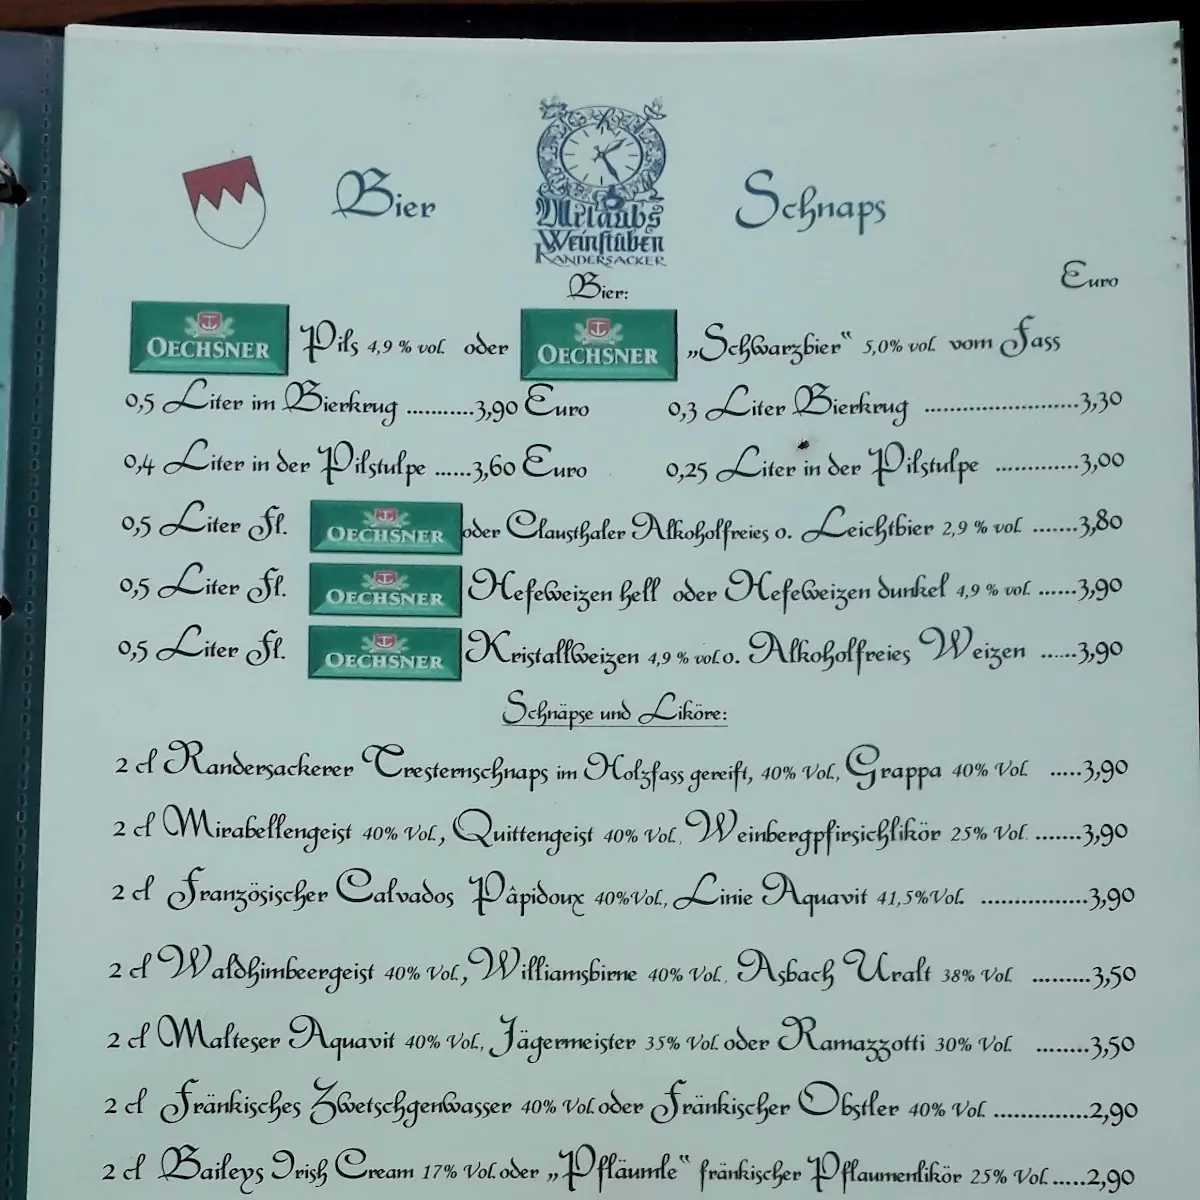 Bier
Urlaubs
Weinstuben
RANDERSACKER
Schnaps
Euro
Bier:
OECHSNER Pils 4,9 % vol. oder OECHSNER „Schwarzbier“ 5,0% vol. vom Fass
0,5 Liter im Bierkrug ...........3,90 Euro 0,3 Liter Bierkrug .........................3,30
0,4 Liter in der Pilstulpe ......3,60 Euro 0,25 Liter in der Pilstulpe .............3,00
0,5 Liter Fl. OECHSNER oder Clausthaler Alkoholfreies o. Leichtbier 2,9 % vol. .......3,80
0,5 Liter Fl. OECHSNER Hefeweizen hell oder Hefeweizen dunkel 4,9 % vol. ......3,90
0,5 Liter Fl. OECHSNER Kristallweizen 4,9 % vol. o. Alkoholfreies Weizen ......3,90
Schnäpse und Liköre:
2 cl Randersackerer Tresternschnaps im Holzfass gereift, 40% Vol., Grappa 40% Vol. .....3,90
2 cl Mirabellengeist 40% Vol., Quittengeist 40% Vol., Weinbergpfirsichlikör 25% Vol. .......3,90
2 cl Französischer Calvados Pâpidoux 40%Vol., Linie Aquavit 41,5%Vol. .................3,90
2 cl Waldhimbeergeist 40% Vol., Williamsbirne 40% Vol., Asbach Uralt 38% Vol. .........3,50
2 cl Malteser Aquavit 40% Vol., Jägermeister 35% Vol. oder Ramazzotti 30% Vol. ........3,50
2 cl Fränkisches Zwetschgenwasser 40% Vol. oder Fränkischer Obstler 40% Vol. ...............2,90
2 cl Baileys Irish Cream 17% Vol. oder „Pfläumle“ fränkischer Pflaumenlikör 25% Vol. .....2,90